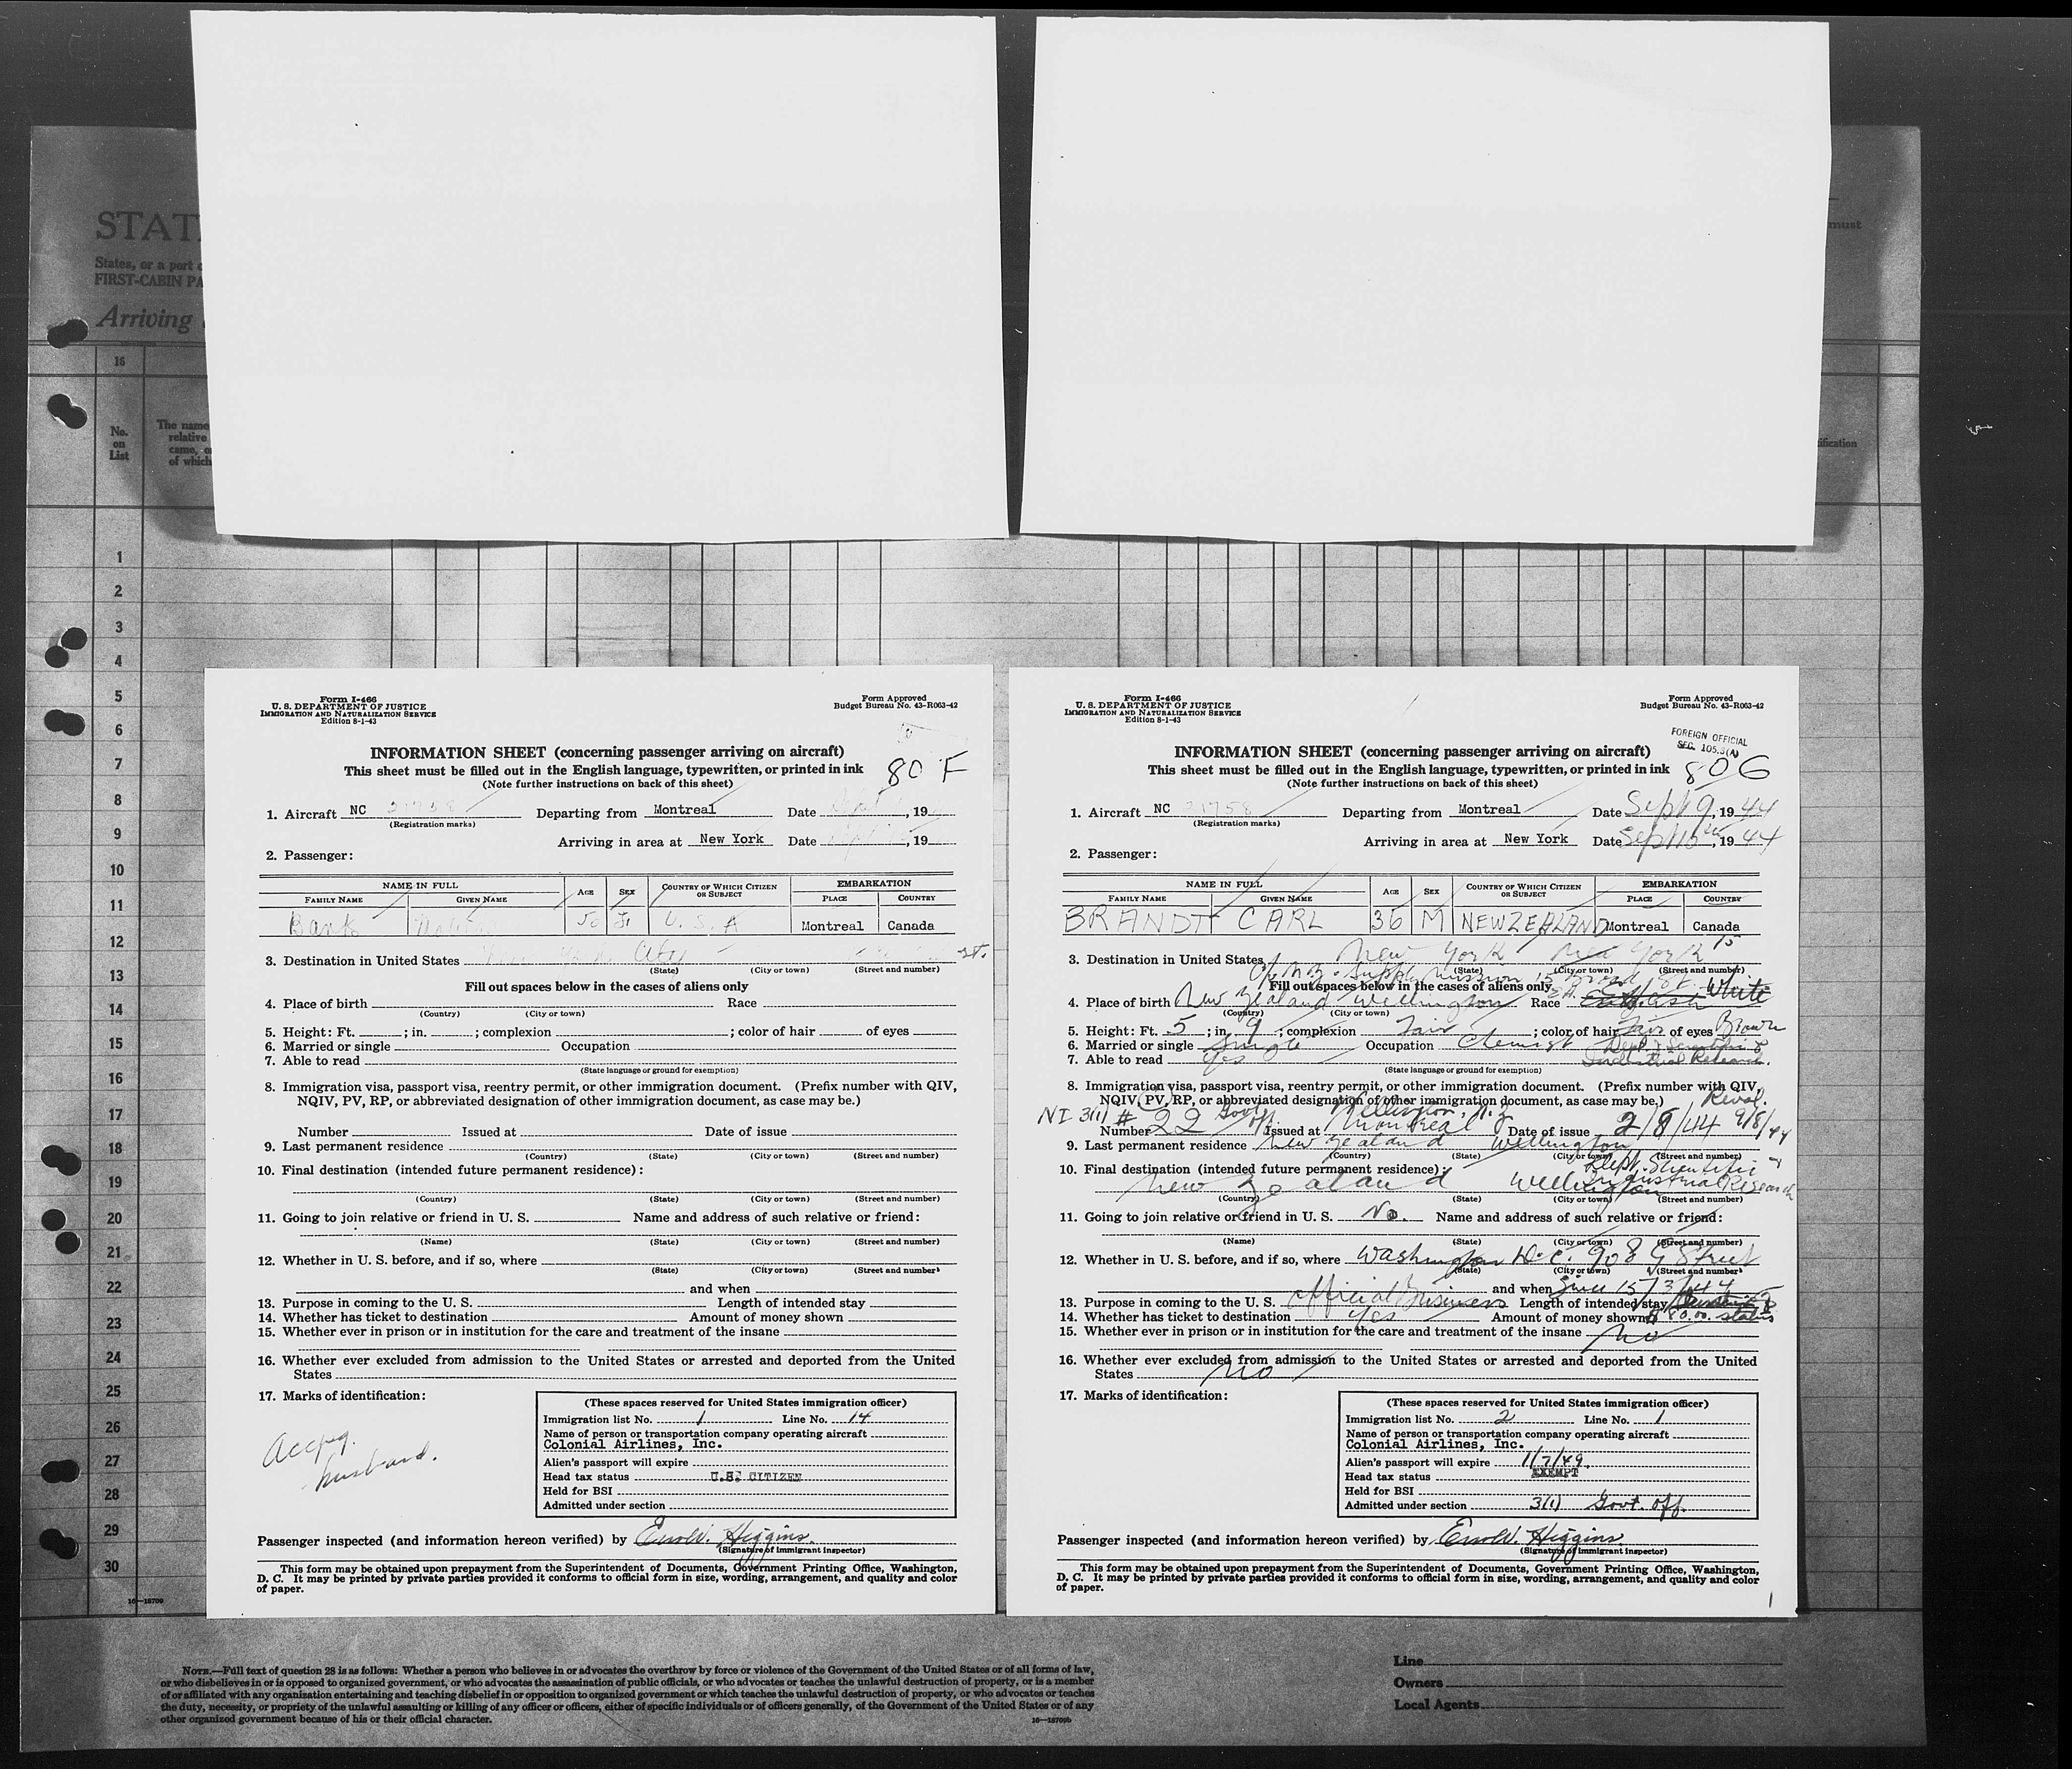 STAT
States, or a part
FIRST-CABIN PA
Arriving
16
No.
on
List
The name
relative
came, o
of which
must
ification
1
2
3
4
5
6
7
8
9
10
11
12
13
14
15
16
17
18
19
20
21
22
23
24
25
26
27
28
29
30
16—18709
Form I-466
U. S. DEPARTMENT OF JUSTICE
IMMIGRATION AND NATURALIZATION SERVICE
Edition 8-1-43
Form Approved
Budget Bureau No. 43-R063-42
INFORMATION SHEET (concerning passenger arriving on aircraft)
This sheet must be filled out in the English language, typewritten, or printed in ink
80 F
(Note further instructions on back of this sheet)
1. Aircraft NC 21758 Departing from Montreal Date , 19
(Registration marks)
Arriving in area at New York Date , 19
2. Passenger:
NAME IN FULL AGE SEX COUNTRY OF WHICH CITIZEN OR SUBJECT EMBARKATION
FAMILY NAME GIVEN NAME PLACE COUNTRY
Banks U. S. A Montreal Canada
3. Destination in United States New York City St.
(State) (City or town) (Street and number)
Fill out spaces below in the cases of aliens only
4. Place of birth Race
(Country) (City or town)
5. Height: Ft. ; in. ; complexion ; color of hair of eyes
6. Married or single Occupation
7. Able to read
(State language or ground for exemption)
8. Immigration visa, passport visa, reentry permit, or other immigration document. (Prefix number with QIV,
NQIV, PV, RP, or abbreviated designation of other immigration document, as case may be.)
Number Issued at Date of issue
9. Last permanent residence
(Country) (State) (City or town) (Street and number)
10. Final destination (intended future permanent residence):
(Country) (State) (City or town) (Street and number)
11. Going to join relative or friend in U. S. Name and address of such relative or friend:
(Name) (State) (City or town) (Street and number)
12. Whether in U. S. before, and if so, where
(State) (City or town) (Street and number)
and when
13. Purpose in coming to the U. S. Length of intended stay
14. Whether has ticket to destination Amount of money shown
15. Whether ever in prison or in institution for the care and treatment of the insane
16. Whether ever excluded from admission to the United States or arrested and deported from the United
States
17. Marks of identification:
Accpg.
husband.
(These spaces reserved for United States immigration officer)
Immigration list No. 1 Line No. 14
Name of person or transportation company operating aircraft
Colonial Airlines, Inc.
Alien's passport will expire
Head tax status U.S. CITIZEN
Held for BSI
Admitted under section
Passenger inspected (and information hereon verified) by Higgins.
(Signature of immigrant inspector)
This form may be obtained upon prepayment from the Superintendent of Documents, Government Printing Office, Washington,
D. C. It may be printed by private parties provided it conforms to official form in size, wording, arrangement, and quality and color
of paper.
Form I-466
U. S. DEPARTMENT OF JUSTICE
IMMIGRATION AND NATURALIZATION SERVICE
Edition 8-1-43
Form Approved
Budget Bureau No. 43-R063-42
FOREIGN OFFICIAL
SEC. 105.3(A)
INFORMATION SHEET (concerning passenger arriving on aircraft)
This sheet must be filled out in the English language, typewritten, or printed in ink
80G
(Note further instructions on back of this sheet)
1. Aircraft NC 21758 Departing from Montreal Date Sept 9, 1944
(Registration marks)
Arriving in area at New York Date Sept 10th, 1944
2. Passenger:
NAME IN FULL AGE SEX COUNTRY OF WHICH CITIZEN OR SUBJECT EMBARKATION
FAMILY NAME GIVEN NAME PLACE COUNTRY
BRANDT CARL 36 M NEW ZEALAND Montreal Canada
3. Destination in United States New York New York 15
(State) (City or town) (Street and number)
c/o N.Z. Supply Mission 15 Broad St.
Fill out spaces below in the cases of aliens only
4. Place of birth New Zealand Wellington Race White
(Country) (City or town)
5. Height: Ft. 5; in. 9; complexion Fair; color of hair Fair of eyes Brown
6. Married or single Single Occupation Chemist Dept. Scientific &
7. Able to read Yes Industrial Research.
(State language or ground for exemption)
8. Immigration visa, passport visa, reentry permit, or other immigration document. (Prefix number with QIV,
NQIV, PV, RP, or abbreviated designation of other immigration document, as case may be.) Reval.
NI 3(1) # Govt. off. Wellington, N.Z.
Number 22 Issued at Montreal Date of issue 2/8/44 9/8/44
9. Last permanent residence New Zealand Wellington
(Country) (State) (City or town) (Street and number)
Dept. Scientific &
10. Final destination (intended future permanent residence): Industrial Research
New Zealand Wellington
(Country) (State) (City or town) (Street and number)
11. Going to join relative or friend in U. S. No. Name and address of such relative or friend:
(Name) (State) (City or town) (Street and number)
12. Whether in U. S. before, and if so, where Washington D.C. 908 G Street
(State) (City or town) (Street and number)
and when Since 15/3/44
13. Purpose in coming to the U. S. Official Business Length of intended stay
14. Whether has ticket to destination Yes Amount of money shown status
15. Whether ever in prison or in institution for the care and treatment of the insane No
16. Whether ever excluded from admission to the United States or arrested and deported from the United
States No
17. Marks of identification:
(These spaces reserved for United States immigration officer)
Immigration list No. 2 Line No. 1
Name of person or transportation company operating aircraft
Colonial Airlines, Inc.
Alien's passport will expire 1/7/49.
Head tax status EXEMPT
Held for BSI
Admitted under section 3(1) Govt. off.
Passenger inspected (and information hereon verified) by Higgins.
(Signature of immigrant inspector)
This form may be obtained upon prepayment from the Superintendent of Documents, Government Printing Office, Washington,
D. C. It may be printed by private parties provided it conforms to official form in size, wording, arrangement, and quality and color
of paper.
NOTE.—Full text of question 28 is as follows: Whether a person who believes in or advocates the overthrow by force or violence of the Government of the United States or of all forms of law,
or who disbelieves in or is opposed to organized government, or who advocates the assassination of public officials, or who advocates or teaches the unlawful destruction of property, or is a member
of or affiliated with any organization entertaining and teaching disbelief in or opposition to organized government or which teaches the unlawful destruction of property, or who advocates or teaches
the duty, necessity, or propriety of the unlawful assaulting or killing of any officer or officers, either of specific individuals or of officers generally, of the Government of the United States or of any
other organized government because of his or their official character.
16—18709b
Line
Owners
Local Agents